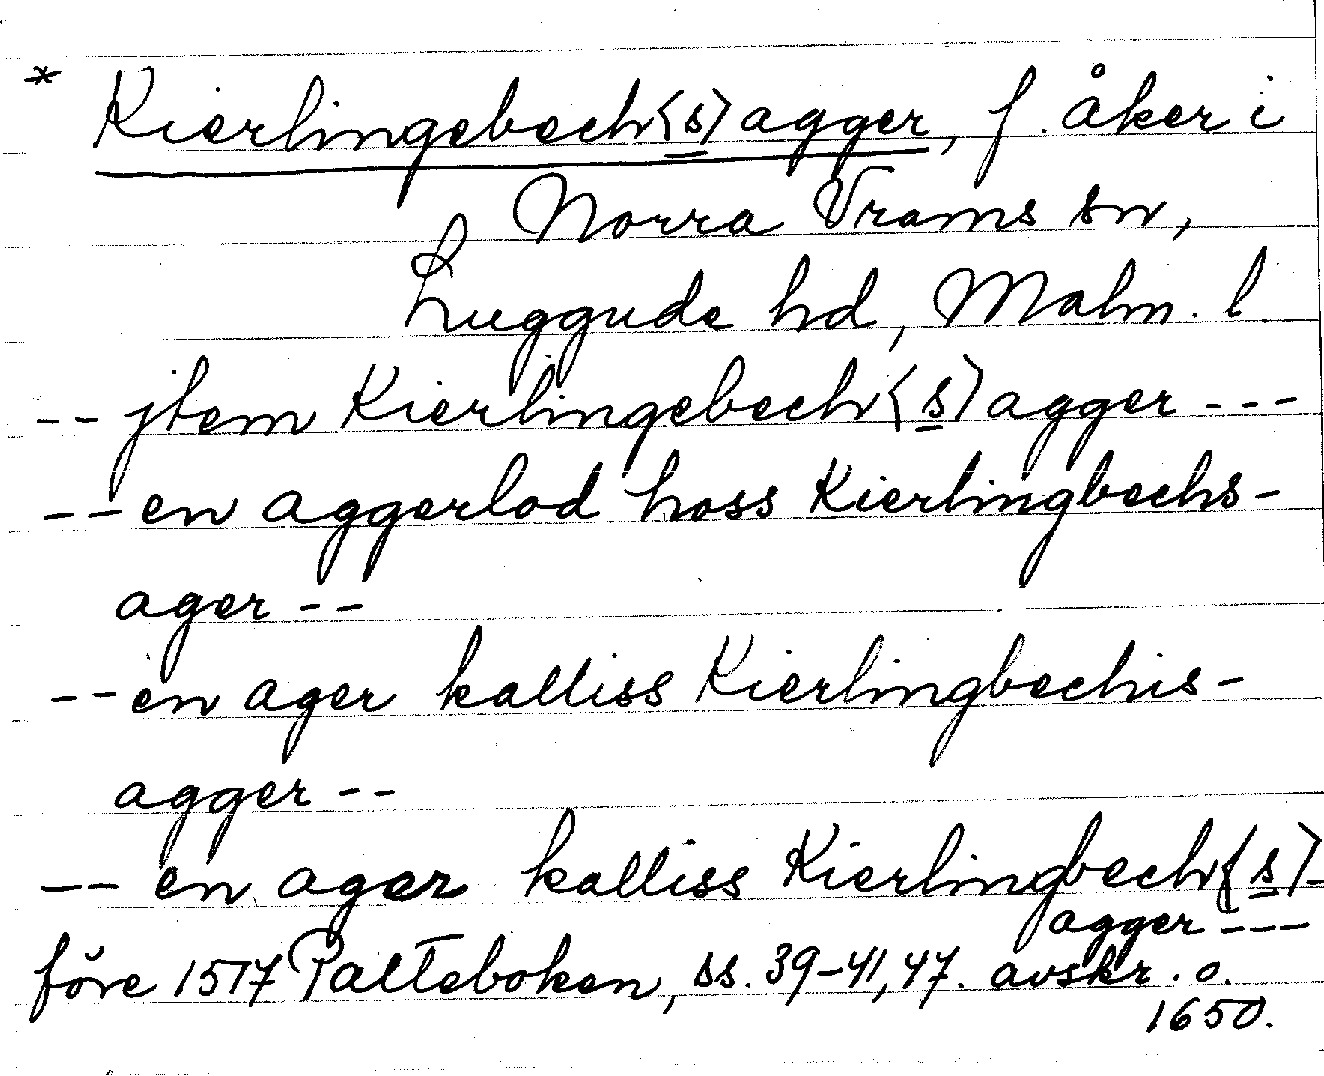 * Kierlingebech⟨s⟩agger, f. åker i
Norra Vrams sn,
Luggude hd, Malm. l.
-- jtem Kierlingebech⟨s⟩agger ---
-- en aggerlod hoss Kierlingbechs-
ager --
-- en ager kalliss Kierlingbechis-
agger --
-- en ager kalliss Kierlingbech⟨s⟩-
agger ---
före 1517 Palteboken, ss. 39-41, 47. avskr. o.
1650.